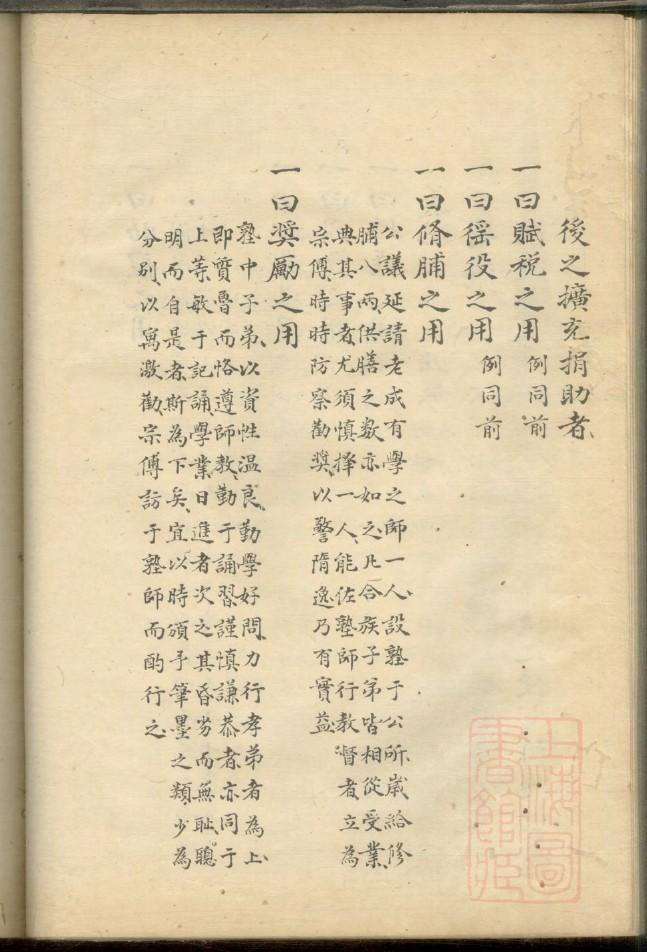 後之擴充捐助者、
一曰賦税之用 例同前
一曰徭役之用 例同前
一曰脩脯之用
公議延請老成有學之師一人、設塾于公所、歲給修
脯八兩、供膳之数亦如之、凡合族子弟皆相從受業、
典其事者尤須慎擇一人、能佐塾師行教督者立為
宗傅、時時防察勸奬、以警隋逸乃有實益、
一曰奨勵之用
塾中子弟、以資性温良、勤學好問、力行孝弟者為上、
即質魯而恪遵師教、勤于誦習、謹慎謙恭者、亦同于
上等、敏于記誦、學業日進者次之、其昏劣而無耻、聰
明而自是者、斯為下矣、宜以時頒予筆墨之類、少為
分别、以寓激勸、宗傅訪于塾師而酌行之、
上海圖
書館藏